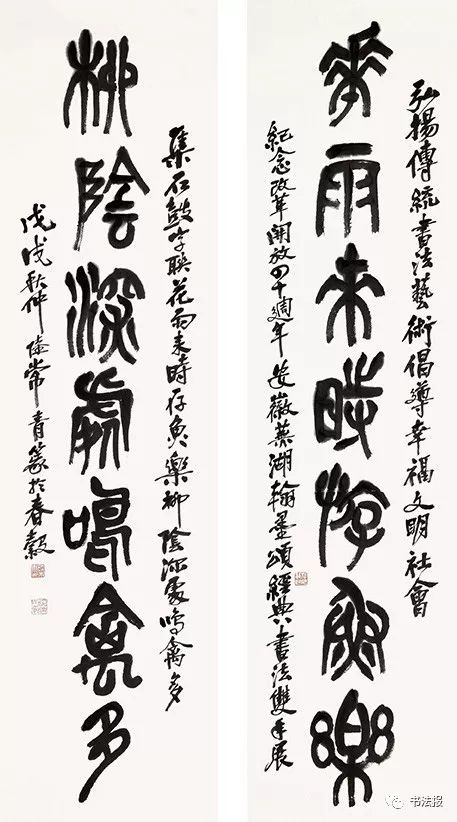 弘揚傳統書法藝術倡導幸福文明社會
華雨来時游魚樂
紀念改革開放四十週年安徽蕪湖翰墨頌經典書法雙年展
集石鼓字联花雨来時魚樂柳陰深處鳴禽多
柳陰深處鳴禽多
戊戌秋仲常青篆於春穀
书法报